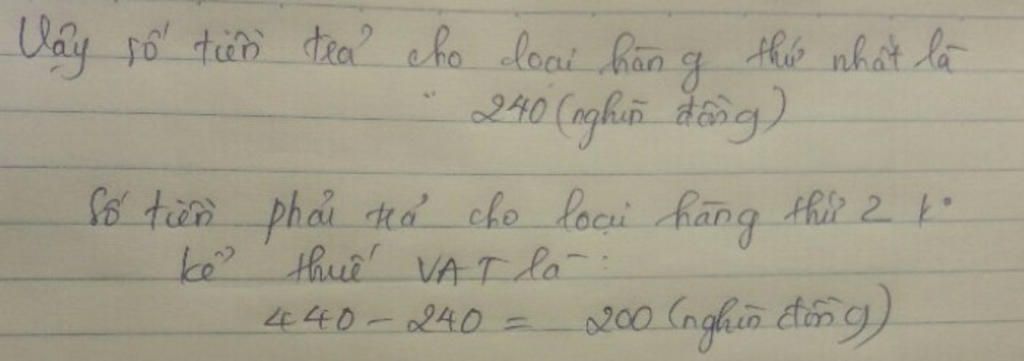 Vậy số tiền trả cho loại hàng thứ nhất là
240 (nghìn đồng)
Số tiền phải trả cho loại hàng thứ 2 k°
kể thuế VAT là:
440 - 240 = 200 (nghìn đồng)